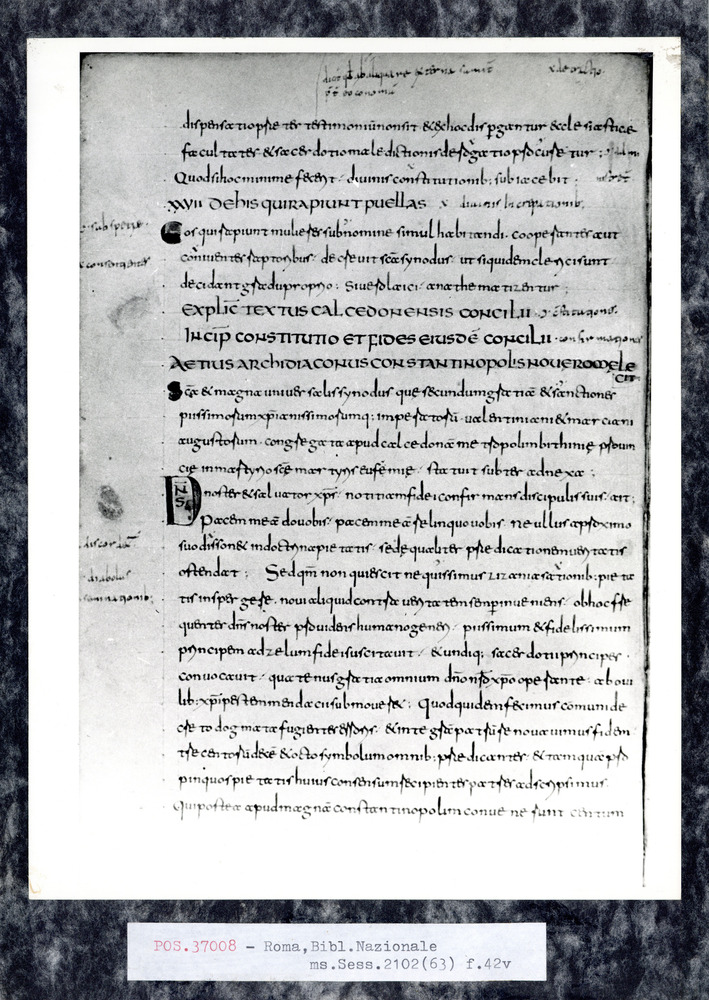 dispensatio psie ter testimoniū non sit & ex hoc dispergantur ecclesiasticae
facultates & sacerdotio maledictionis derogatio procuretur;
Quod si hoc minime fecerit divinis constitutionib; subiacebit
XXVII DE HIS QUI RAPIUNT PUELLAS
Eos qui rapiunt mulieres sub nomine simul habitandi cooperantes aut
conniventes raptoribus decrevit scā synodus ut siquidem clerici sunt
decidant gradu proprio; Sive laici anathematizentur;
EXPLIC TEXTUS CALCEDONENSIS CONCILII
INCIP CONSTITUTIO ET FIDES EIUSDĒ CONCILII
AETIUS ARCHIDIACONUS CONSTANTINOPOLIS NOVE ROME LE
CIT
Scā & magna universalis synodus que secundum gratiā & sanctiones
piissimorum xpianissimorumq; imperatorū valentiniani & marciani
augustorum congregata apud calcedonā metropolim bithinie provin
cie in martyrio scē martyris eufemie statuit subter adnexa;
DNS noster & salvator xps notitiam fidei confirmans discipulis suis ait;
Pacem meā do vobis pacem meā relinquo vobis ne ullus a proximo
suo dissonet in doctrina pietatis sed equaliter predicationem veritatis
ostendat; Sed qm non quiescit nequissimus zizania sationib; pieta
tis inspergere novi aliquid contra veritatem semper inveniens ob hoc fre
quenter dns noster providens humano generi piissimum & fidelissimum
principem ad zelum fidei suscitavit & undiq; sacerdotii principes
convocavit quatenus gratia omnium dnō nrō xpo operante ab ovi
lib; xpi pestem mendacii submoveret Quod quidem fecimus comuni de
cre to dogmata fugientes erroris & integrā patrū renovavimus fidem
tre centorū decē & octo symbolum omnib; predicantes & tamquā pro
pinquos pietatis huius consensum recipientes patres adscripsimus
Qui postea apud magnā constantinopolim convenerunt centum
POS.37008 - Roma,Bibl.Nazionale
ms.Sess.2102(63) f.42v